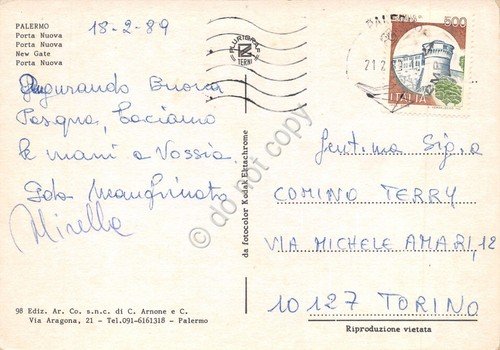 PALERMO
Porta Nuova
Porta Nuova
New Gate
Porta Nuova
18-2-89
Augurando Buona
Pasqua, baciamo
le mani a Vossia.
Mirella
98 Ediz. Ar. Co. s.n.c. di C. Arnone e C.
Via Aragona, 21 - Tel.091-6161318 - Palermo
PLURIGRAF
TERNI
da fotocolor Kodak Ektachrome
© do not copy
PALERMO
21 2
500
ITALIA
Gent.ma Sig.a
COMINO TERRY
VIA MICHELE AMARI, 12
10127 TORINO
Riproduzione vietata